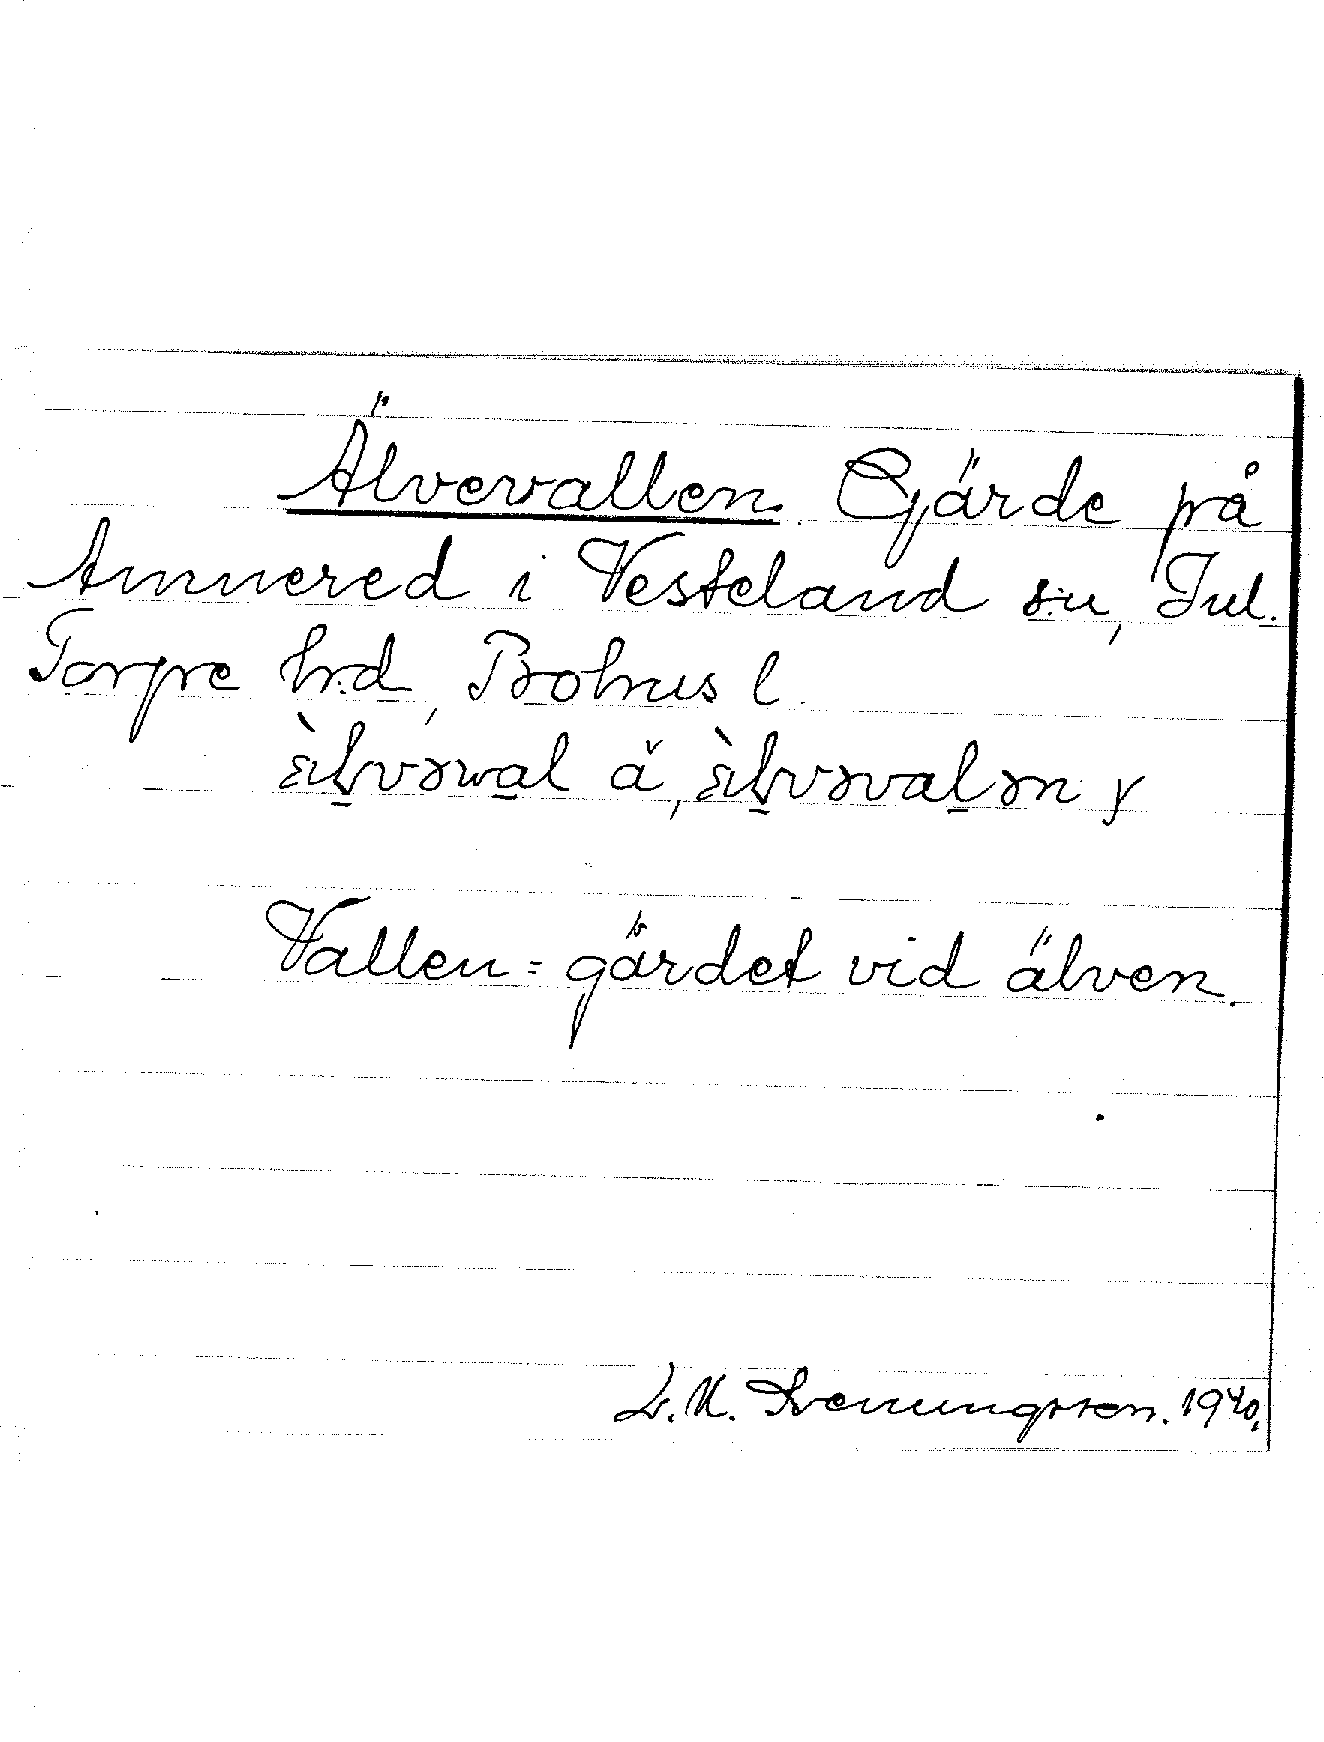 Älvevallen. Gärde på
Amnered i Vesteland sn, Inl.
Torpe hd, Bohus l.
Vallen = gärdet vid älven.
L. M. Svenungsson. 1940.